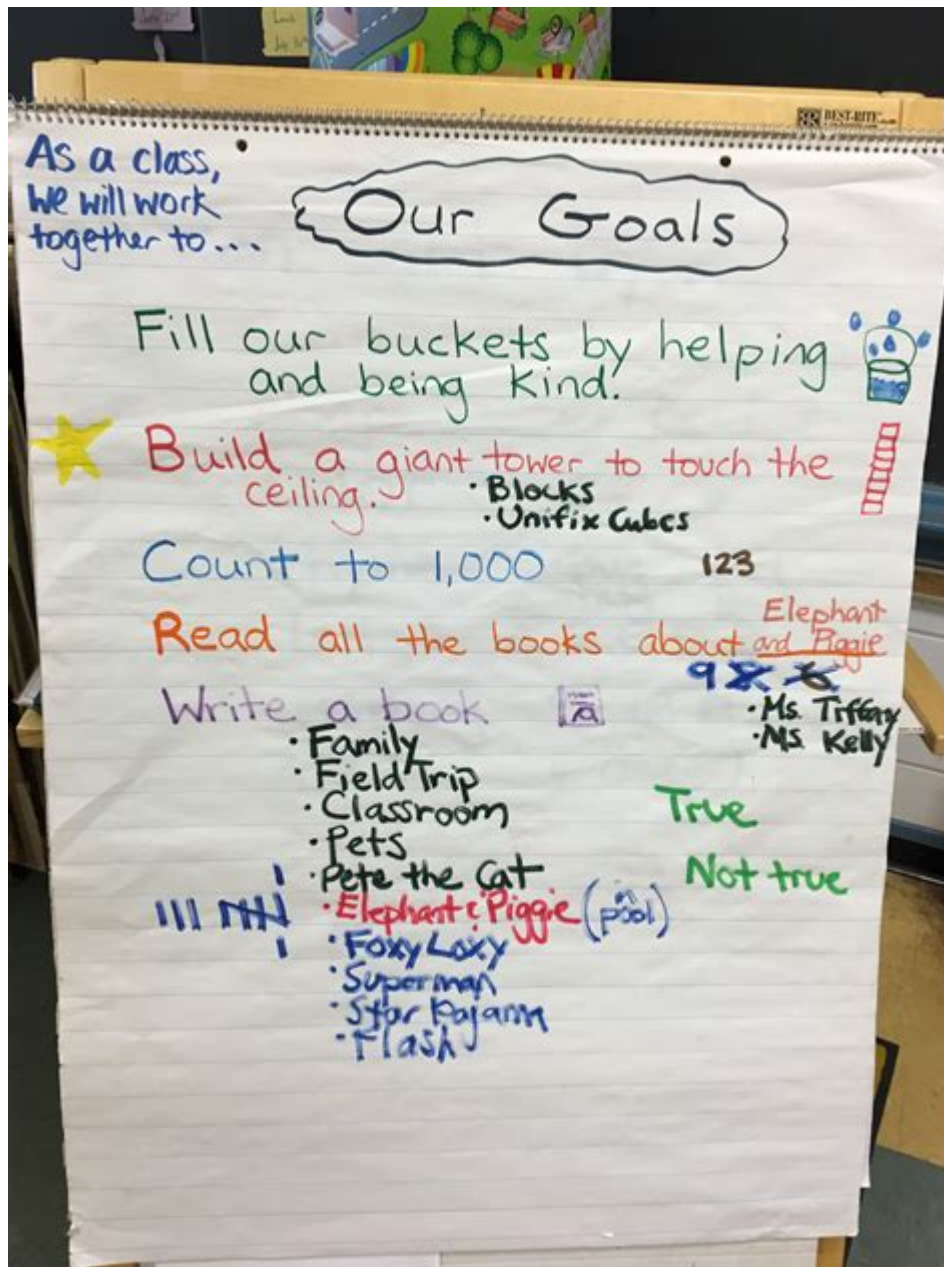 BEST-RITE
As a class,
we will work
together to...
Our Goals
Fill our buckets by helping
and being kind.
Build a giant tower to touch the
ceiling.
· Blocks
· Unifix Cubes
Count to 1,000
123
Read all the books about Elephant
and Piggie
9
· Ms. Tiffany
· Ms. Kelly
Write a book
· Family
· Field Trip
· Classroom
· Pets
· Pete the Cat
· Elephant & Piggie (in pool)
· Foxy Loxy
· Superman
· Star Pajama
· Flash
True
Not true